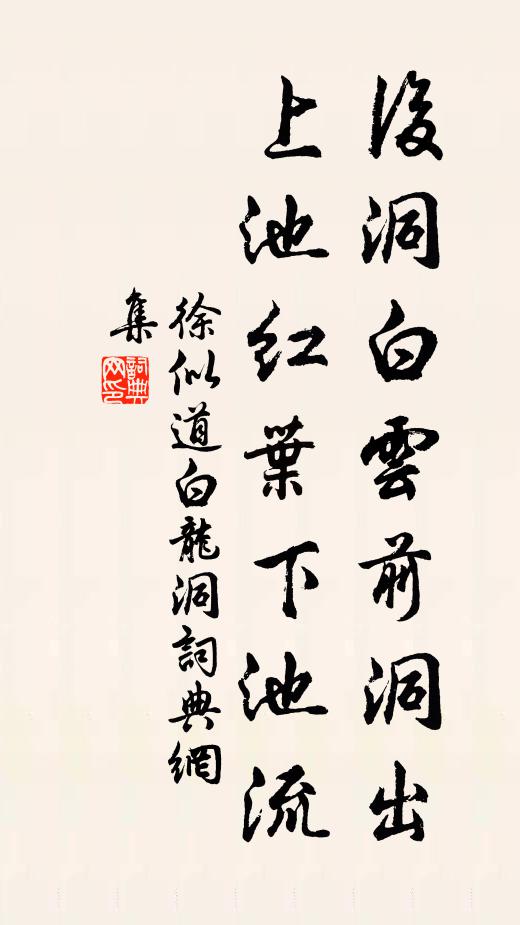 後洞白雲前洞出
上池紅葉下池流
徐似道白龍洞詞典網
集
詞典網印